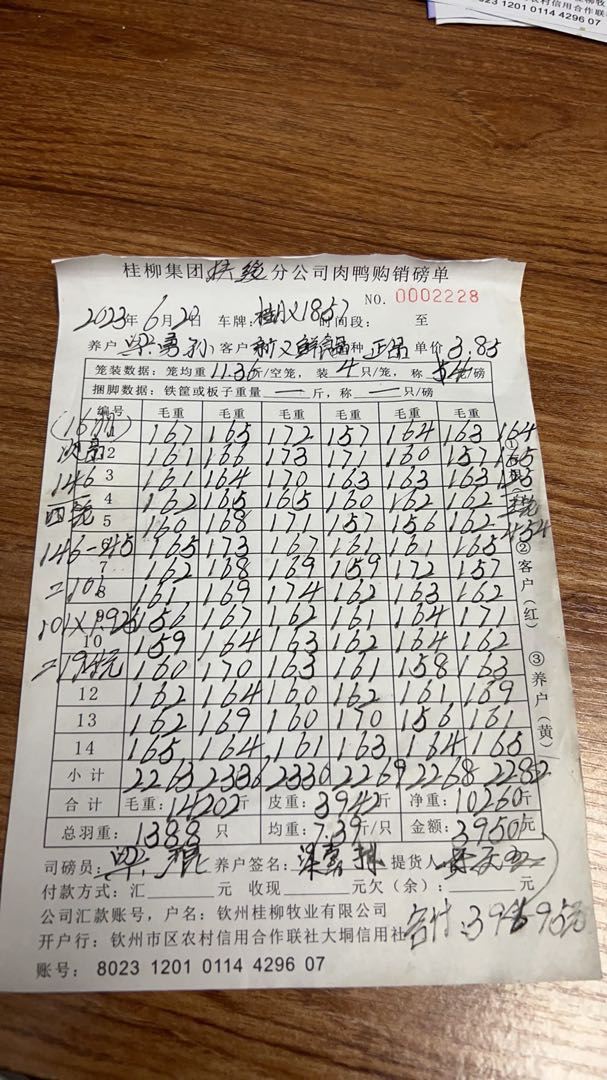 8023 1201 0114 4296 07
桂柳集团扶绥分公司肉鸭购销磅单
NO. 0002228
2023年6月20日 车牌: 时间段: 至
养户 客户 品种 正品 单价 3.85
笼装数据: 笼均重 11.36 斤/空笼, 装 4 只/笼, 称 笼/磅
捆脚数据: 铁筐或板子重量 — 斤, 称 — 只/磅
编号 毛重 毛重 毛重 毛重 毛重 毛重
167 165 172 157 164 163 164
2 161 166 173 171 160 157 165
146 3 161 164 170 163 163 163
4 162 165 165 160 162 162
5 160 168 171 157 156 162
146-45 6 165 173 167 161 161 165
7 162 168 169 159 172 157
=101 8 161 169 174 162 163 162
9 156 167 162 161 164 171
10 159 164 163 162 164 162
160 170 163 161 158 163
12 162 164 160 162 161 169
13 162 169 160 170 156 161
14 165 164 161 163 164 165
小计 2263 2336 2330 2269 2268 2282
合计 毛重: 14202斤 皮重: 3942斤 净重: 10260斤
总羽重: 1388 只 均重: 7.39斤/只 金额: 39501元
司磅员: 养户签名: 提货人:
付款方式: 汇 元 收现 元欠(余): 元
公司汇款账号, 户名: 钦州桂柳牧业有限公司
开户行: 钦州市区农村信用合作联社大垌信用社
账号: 8023 1201 0114 4296 07
②客户(红)
③养户(黄)